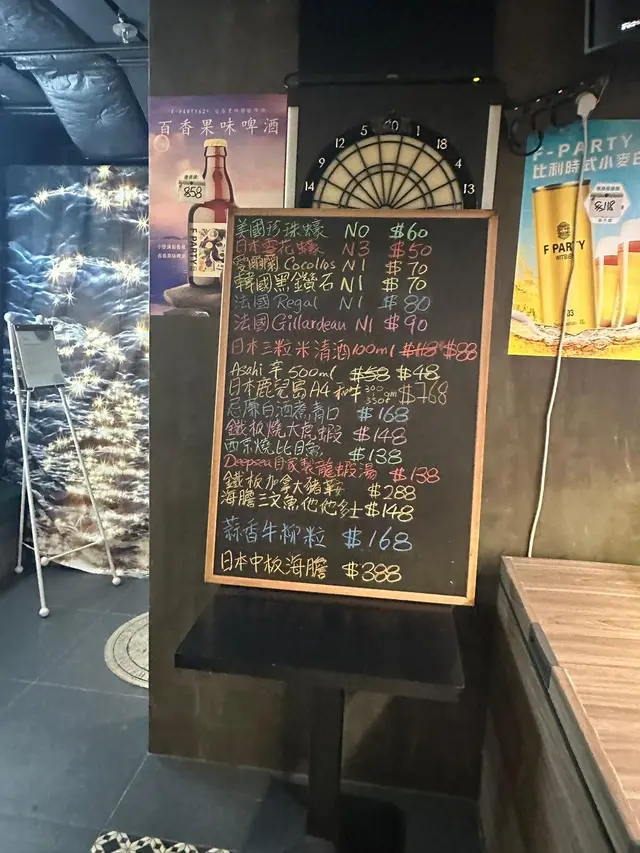 百香果味啤酒
$58
12 5 20 1 18
9 4
14 13
F-PARTY
比利時式小麥白
F PARTY
美國珍珠蠔 NO $60
日本雪花蠔 N3 $50
愛爾蘭 Cocollos N1 $70
韓國黑鑽石 N1 $70
法國 Regal N1 $80
法國Gillardeau N1 $90
日本三粒米清酒100ml $118 $88
Asahi 羊 500ml $58 $48
日本鹿兒島A4和牛 $768
忌廉白酒煮青口 $168
鐵板燒大虎蝦 $148
西京燒比目魚 $138
Deepsea自家製龍蝦湯 $138
鐵板加拿大豬鞍 $288
海膽三文魚他他多士 $148
蒜香牛柳粒 $168
日本中板海膽 $388